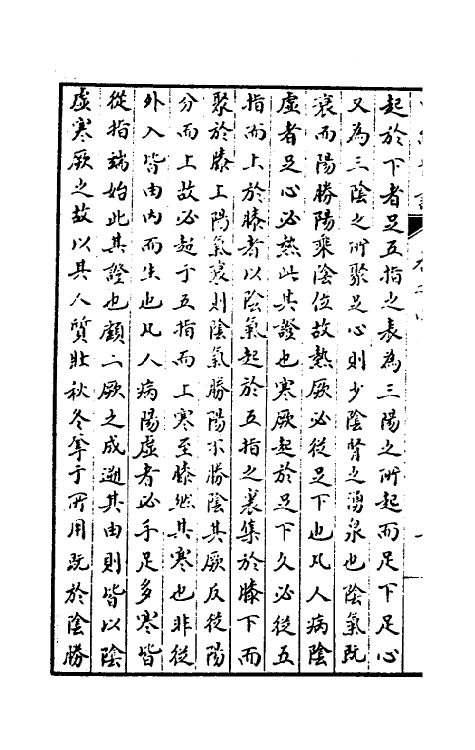 起於下者足五指之表為三陽之所起而足下足心
又為三陰之所聚足心則少陰腎之湧泉也陰氣既
衰而陽勝陽乘陰位故熱厥必從足下也凡人病陰
虛者足心必熱此其證也寒厥起於足下久必從五
指而上於膝者以陰氣起於五指之裏集於膝下而
聚於膝上陽氣衰則陰氣勝陽不勝陰其厥反從陽
分而上故必起于五指而上寒至膝然其寒也非從
外入皆由內而生也凡人病陽虛者必手足多寒皆
從指端始此其證也顧二厥之成遡其由則皆以陰
虛寒厥之故以其人質壯秋冬奪于所用既於陰勝